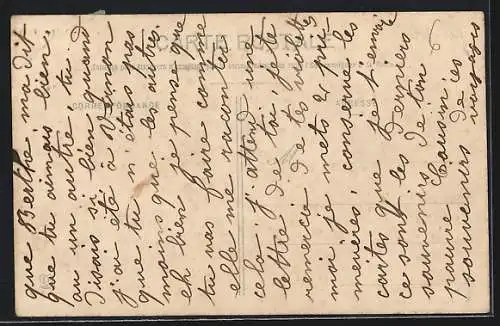 CARTE POSTALE
CORRESPONDANCE
ADRESSE
que Berthe m'a dit
que tu aimais bien
un autre, tu
disais si bien quand
j'ai été à
que tu n'étais pas
moins que les autres.
eh bien je pense que
tu vas faire comme
elle me racontée
cela j'attend une
lettre de toi, je te
remercie de tes violettes
moi je mets 2 pié
mencées, conserve les
cartes que je t'envoie
ce sont les derniers
souvenirs de ton
pauvre Cousin les
souvenirs de voyages